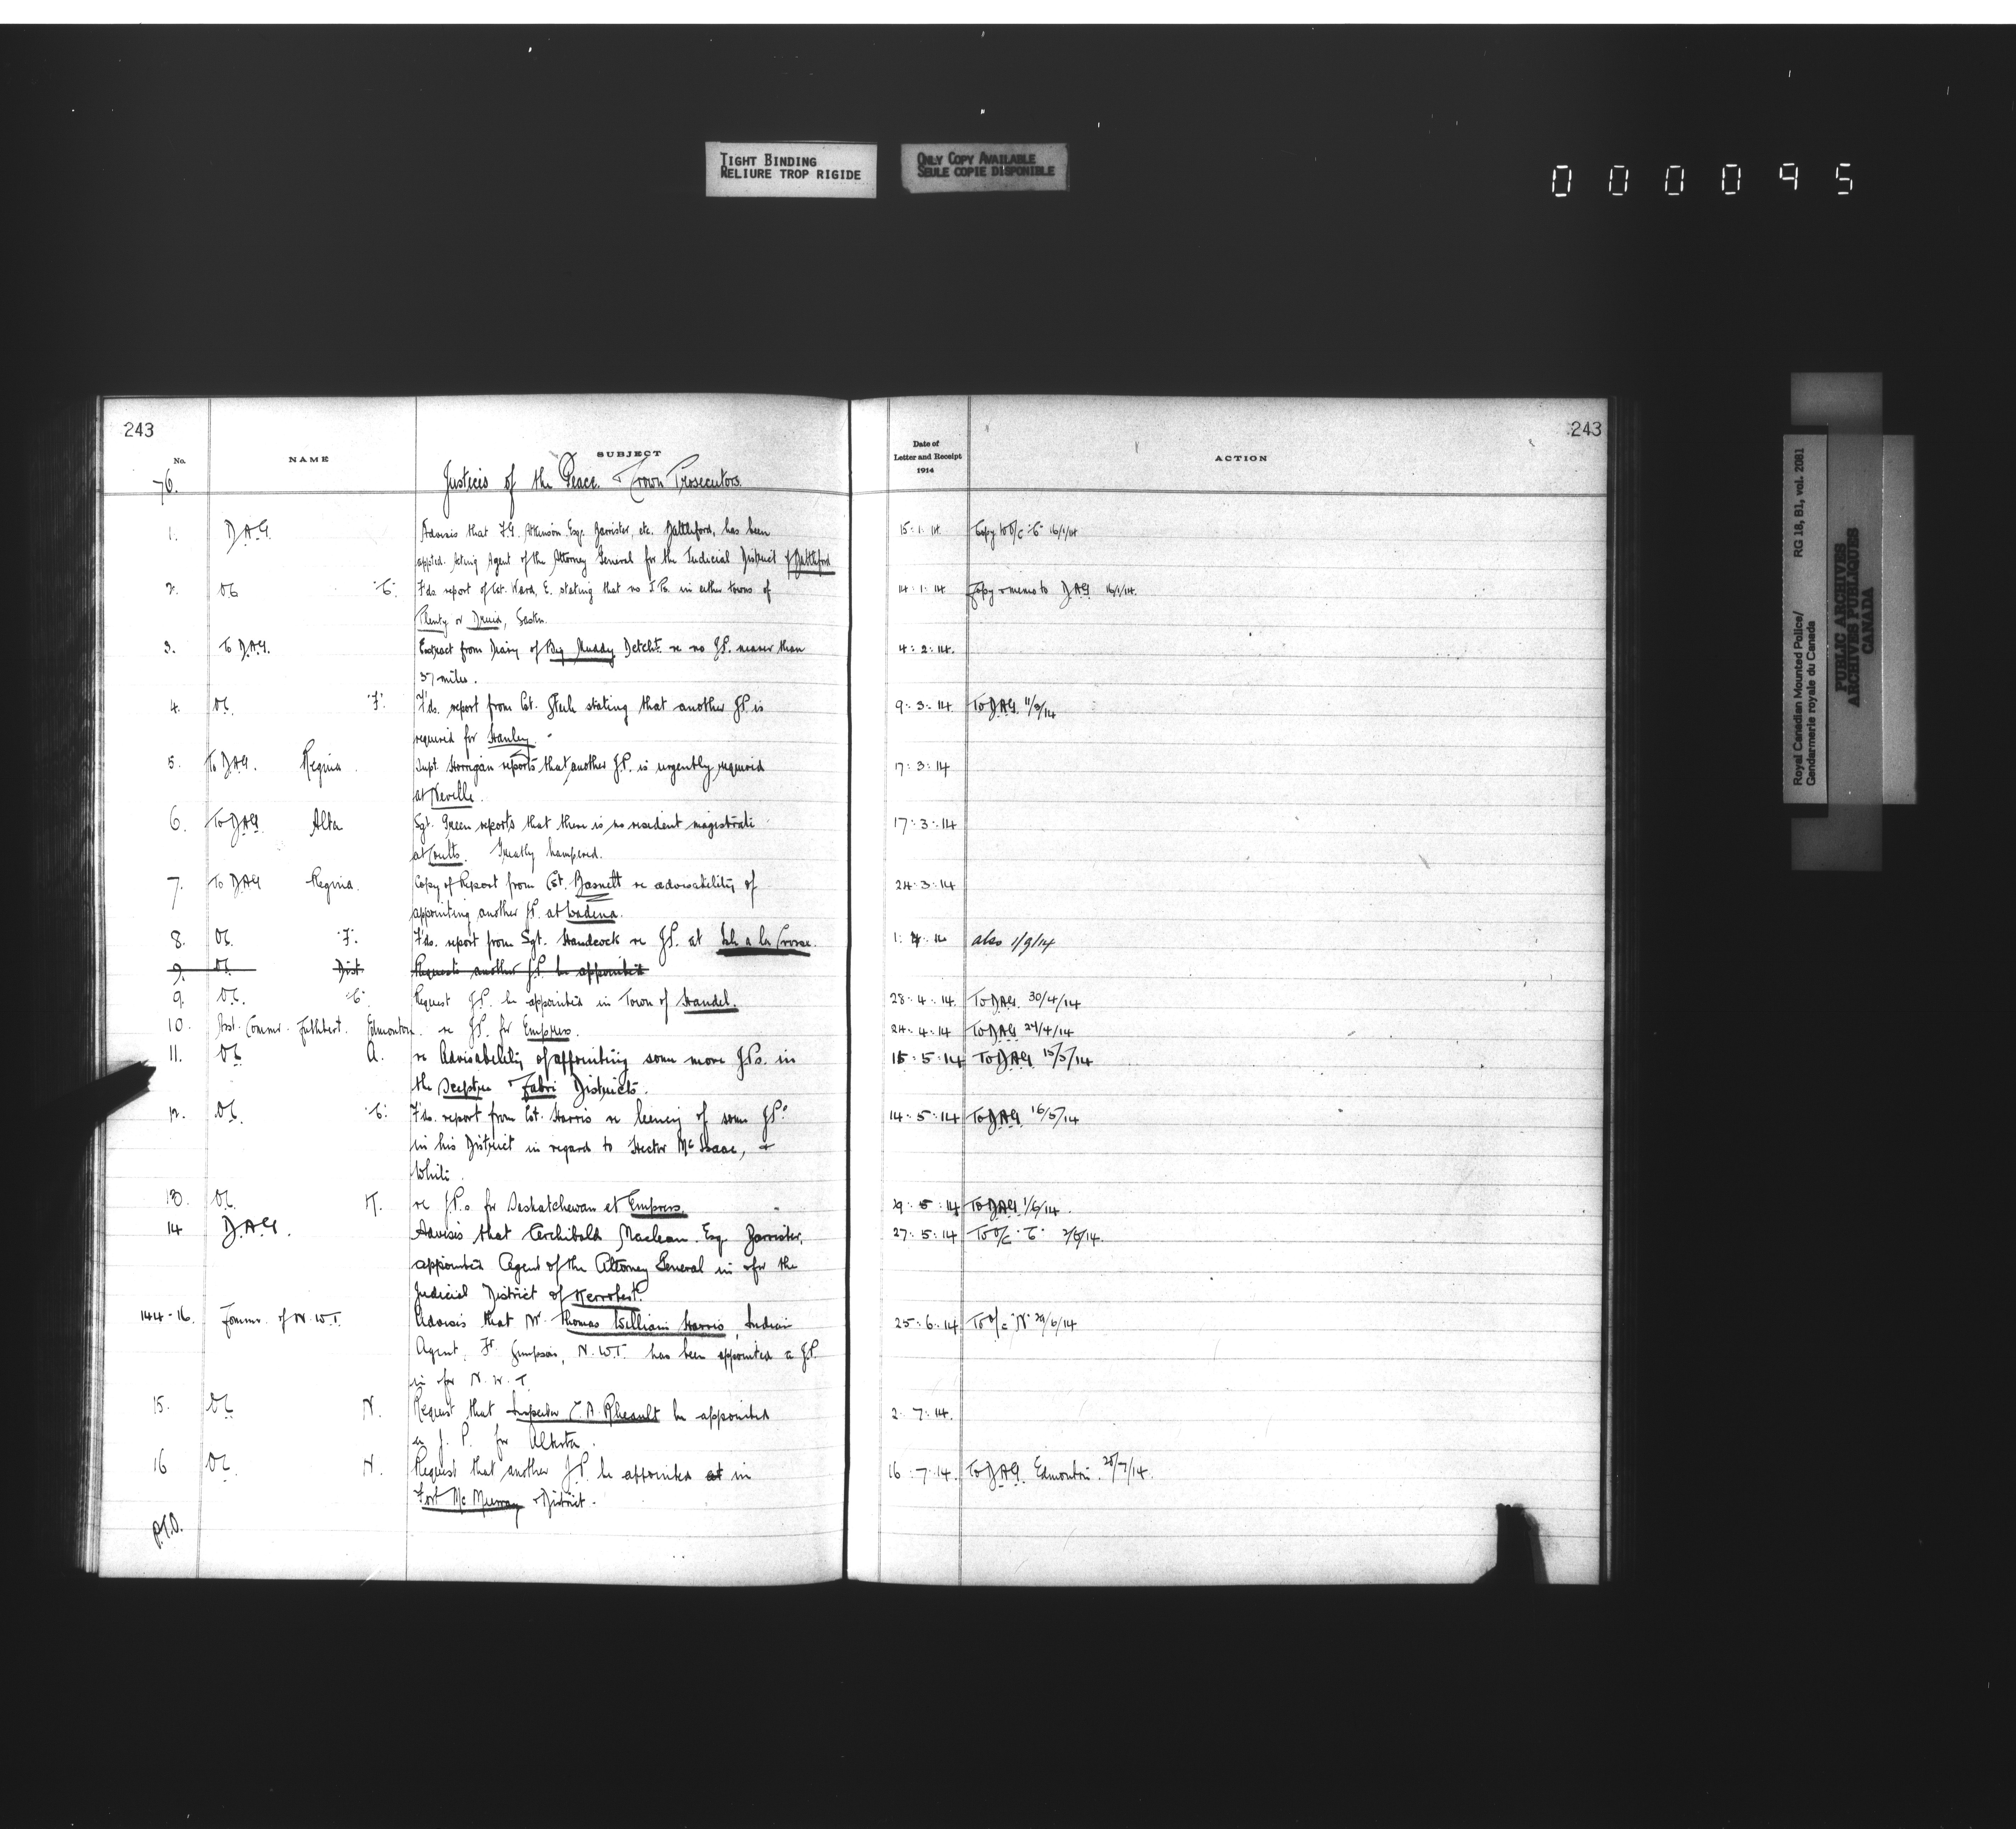 TIGHT BINDING
RELIURE TROP RIGIDE
ONLY COPY AVAILABLE
SEULE COPIE DISPONIBLE
0 0 0 0 9 5
243
No. NAME SUBJECT
76. Justices of the Peace. & Crown Prosecutors.
Date of
Letter and Receipt
1914
ACTION
243
1. D.A.G. Advises that F.G. Atkinson Esq. Barrister, etc. Battleford, has been 15.1.14 Copy to O/C "C" 16/1/14
appted. Acting Agent of the Attorney General for the Judicial District of Battleford
2. OC "C". F'ds. report of Cst. Ward, E. stating that no J.Ps. in either towns of 14.1.14 Copy & memo to DAG 16/1/14.
Plenty or Druid, Sask.
3. To D.A.G. Extract from Diary of Big Muddy Detcht. re no J.P. nearer than 4.2.14.
37 miles.
4. OC. "F". F'ds. report from Cst. stating that another J.P. is 9.3.14 To DAG 11/3/14
required for Stanley.
5. To DAG. Regina Supt. Horrigan reports that another J.P. is urgently required 17.3.14
at Neville.
6. To DAG Alta Sgt. Green reports that there is no resident magistrate 17.3.14
at Coutts. Greatly hampered.
7. To DAG Regina. Copy of Report from Cst. Basnett re advisability of 24.3.14
appointing another J.P. at Wadena.
8. OC. "F". F'ds. report from Sgt. Handcock re J.P. at Isle a la Crosse. 1.4.14 also 1/9/14
9. OC. Dist Requests another J.P. be appointed
9. OC. "C". Request J.P. be appointed in Town of Handel. 28.4.14. To DAG. 30/4/14
10. Asst. Commr. Cuthbert. Edmonton. re J.P. for Empress. 24.4.14 To DAG 24/4/14
11. OC A. re Advisability of appointing some more J.Ps. in 15.5.14 To DAG 15/5/14
the Sceptre & Fabri Districts.
12. OC. "C". F'ds. report from Cst. Harris re leniency of some J.Ps 14.5.14 To DAG 16/5/14
in his District in regard to Hector McIsaac, &
White.
13. OC. K. re J.P.s for Saskatchewan at Empress. 29.5.14 To DAG 1/6/14.
14 D.A.G. Advises that Archibald Maclean. Esq. Barrister, 27.5.14 To O/C "C" 2/6/14.
appointed Agent of the Attorney General in & for the
Judicial District of Kerrobert.
14A-16. Commr. of N.W.T. Advises that Mr Thomas William Harris, Indian 25.6.14 To O/C "N" 29/6/14
Agent, Ft Simpson, N.W.T. has been appointed a J.P.
in & for N.W.T.
15. OC N. Request that Inspector C.A. Rheault be appointed 2.7.14.
a J.P. for Alberta.
16 OC N. Request that another J.P. be appointed at in 16.7.14. To DAG Edmonton. 28/7/14.
Fort McMurray District.
P.T.O.
Royal Canadian Mounted Police/ RG 18, B1, vol. 2081
Gendarmerie royale du Canada
PUBLIC ARCHIVES
ARCHIVES PUBLIQUES
CANADA